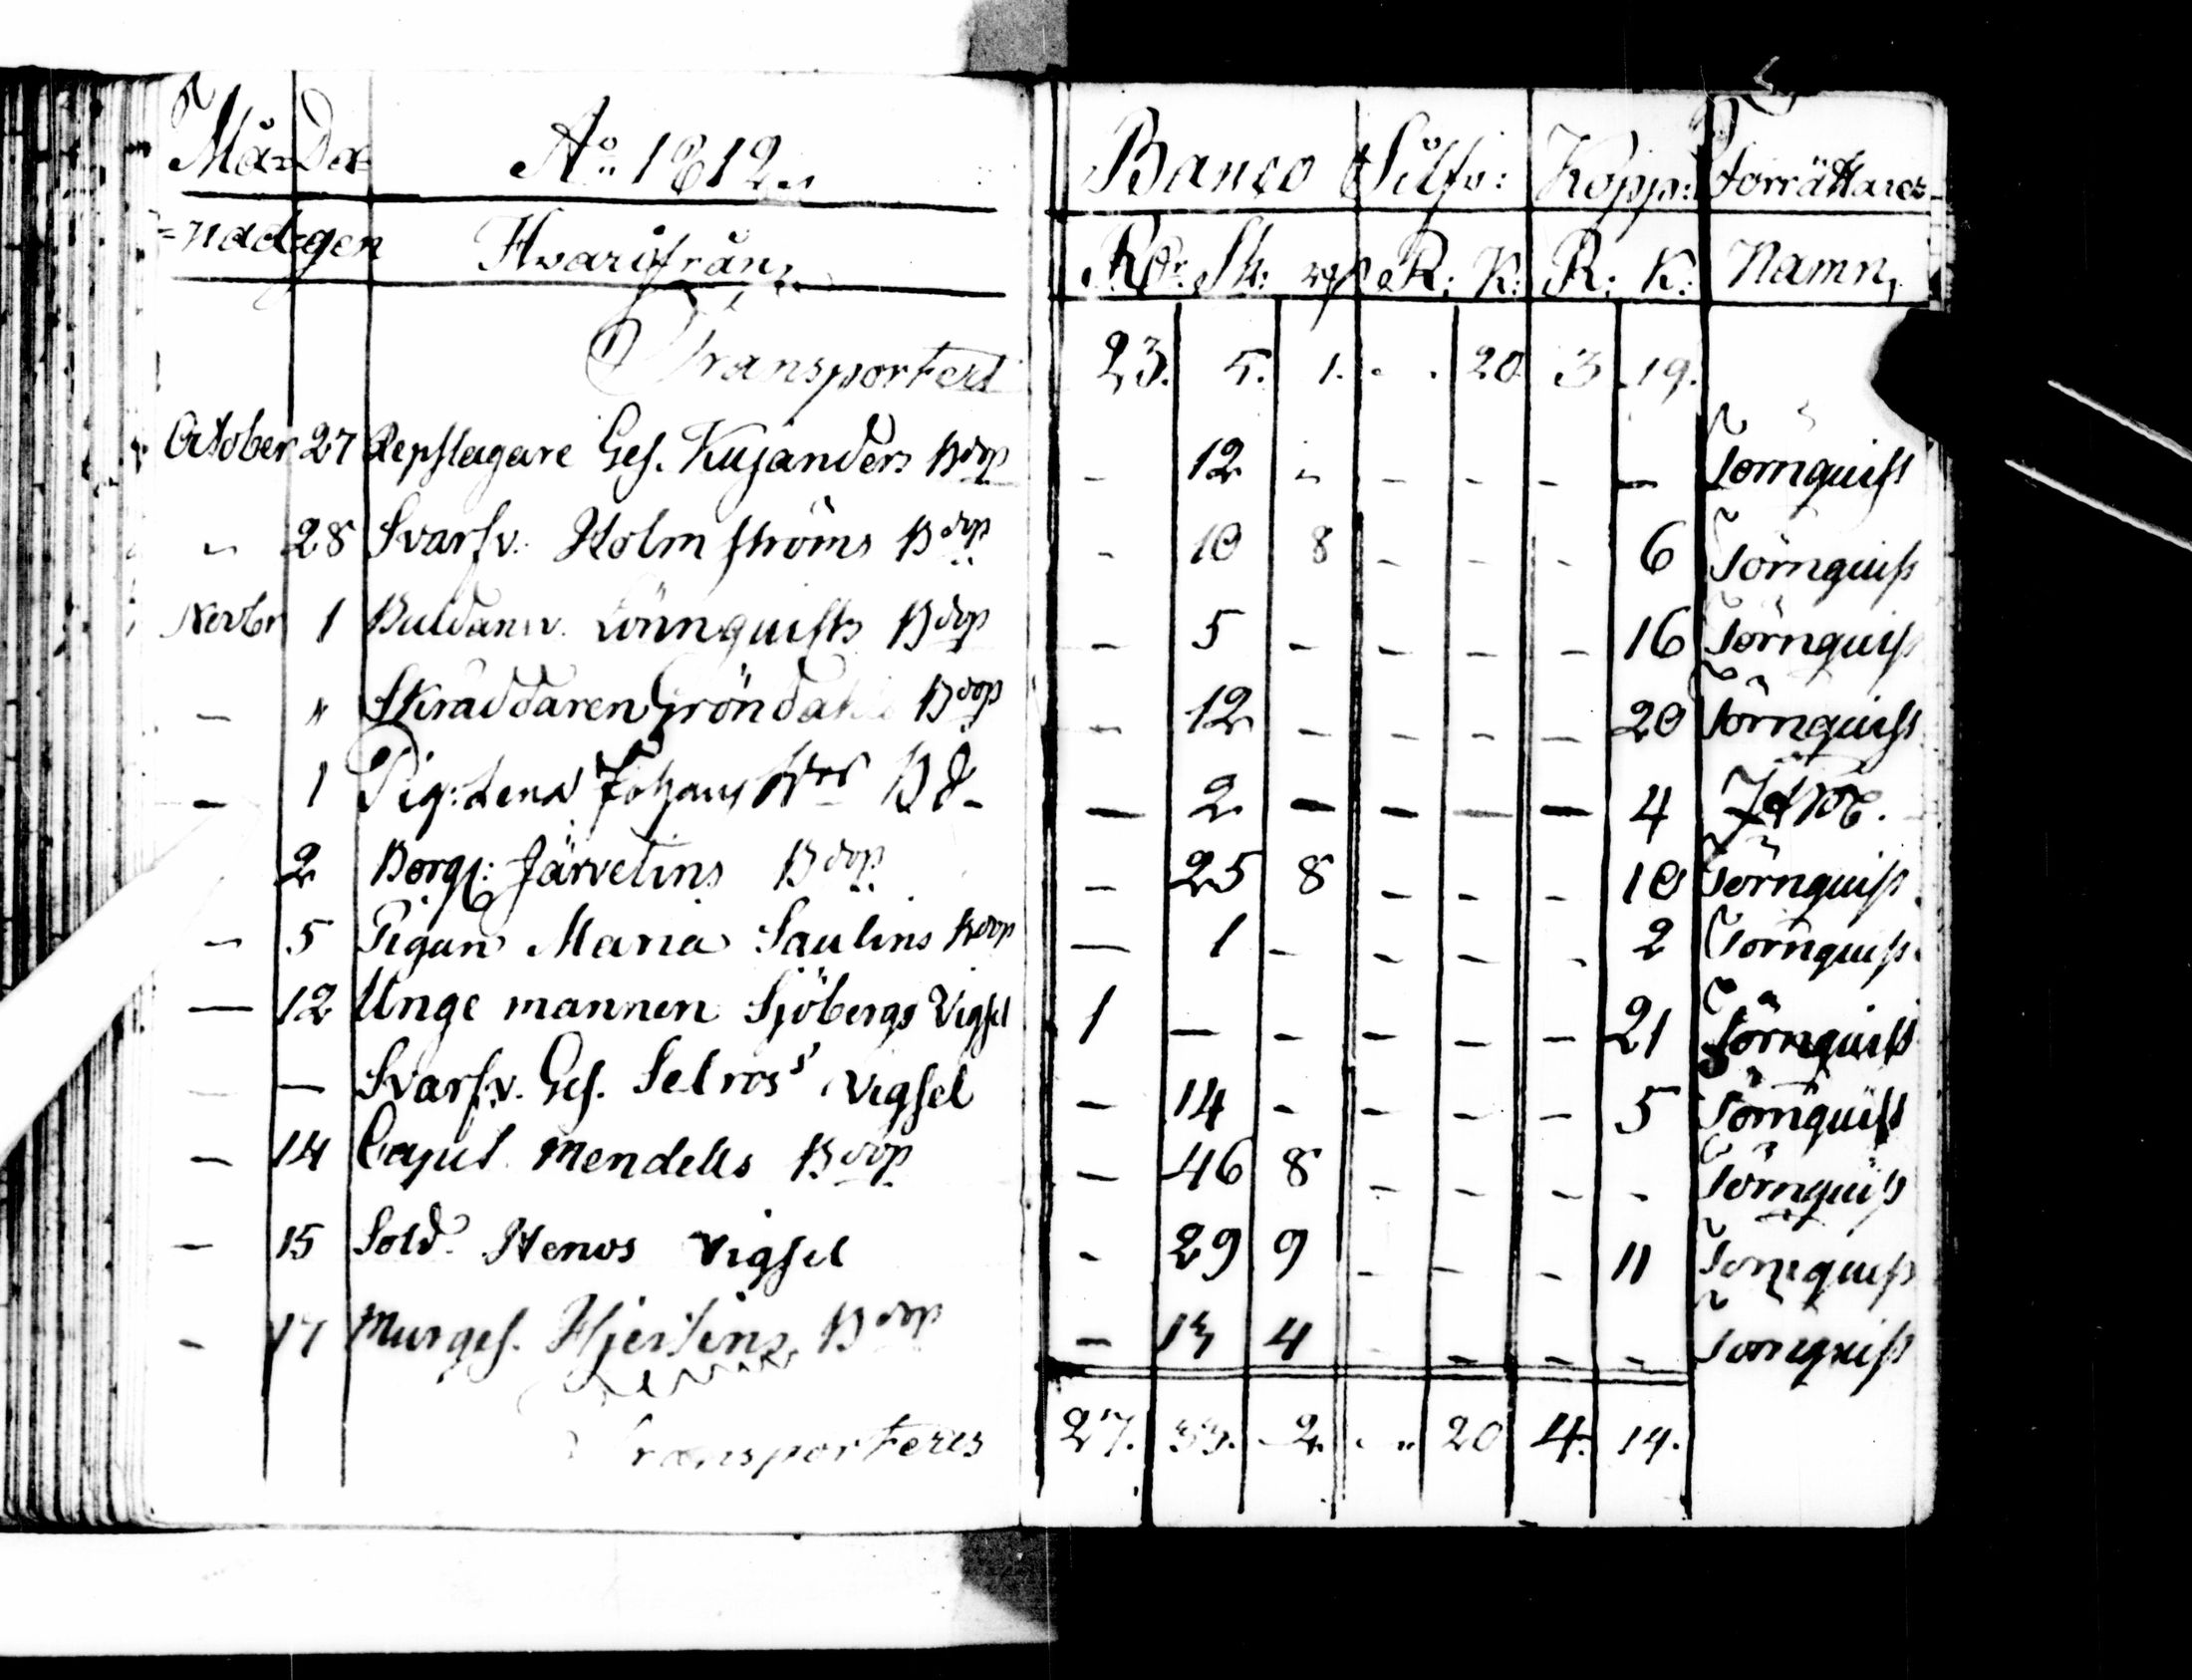 Må= Da= Ao 1812. Banco Silfv: Kopp: Förrättares
=nad gen Hvarifrån, Rdr. Sk: rs R: K: R: K: Namn,
Transporterat 23. 5. 1. . . 20 3 19.
October 27 Repslagare Ges. Kujanders Bdop - 12 - - - - - Törnquist
" 28 Svarfv. Holmströms Bdop - 10 8 - - - 6 Törnquist
Novbr 1 Lönnquists Bdop - 5 - - - - 16 Törnquist
- " Skräddaren Gröndahls Bdop - 12 - - - - 20 Törnquist
- 1 Pig: Lena Johans B d- - 2 - - - - 4
2 Borg: Järvelins Bdop - 25 8 - - - 10 Törnquist
- 5 Pigan Maria Saulins Bdop - 1 - - - - 2 Törnquist
- 12 Unge mannen Sjöbergs Vigsel 1 - - - - - 21 Törnquist
- - Svarfv. Ges. Selros's vigsel - 14 - - - - 5 Törnquist
- 14 Mendells Bdop - 46 8 - - - - Törnquist
- 15 Sold. vigsel - 29 9 - - - 11 Törnquist
- 17 Murges. Hjertins Bdop - 13 4 - - - - Törnquist
Transporteres 27. 33. 2. . " 20 4. 19.